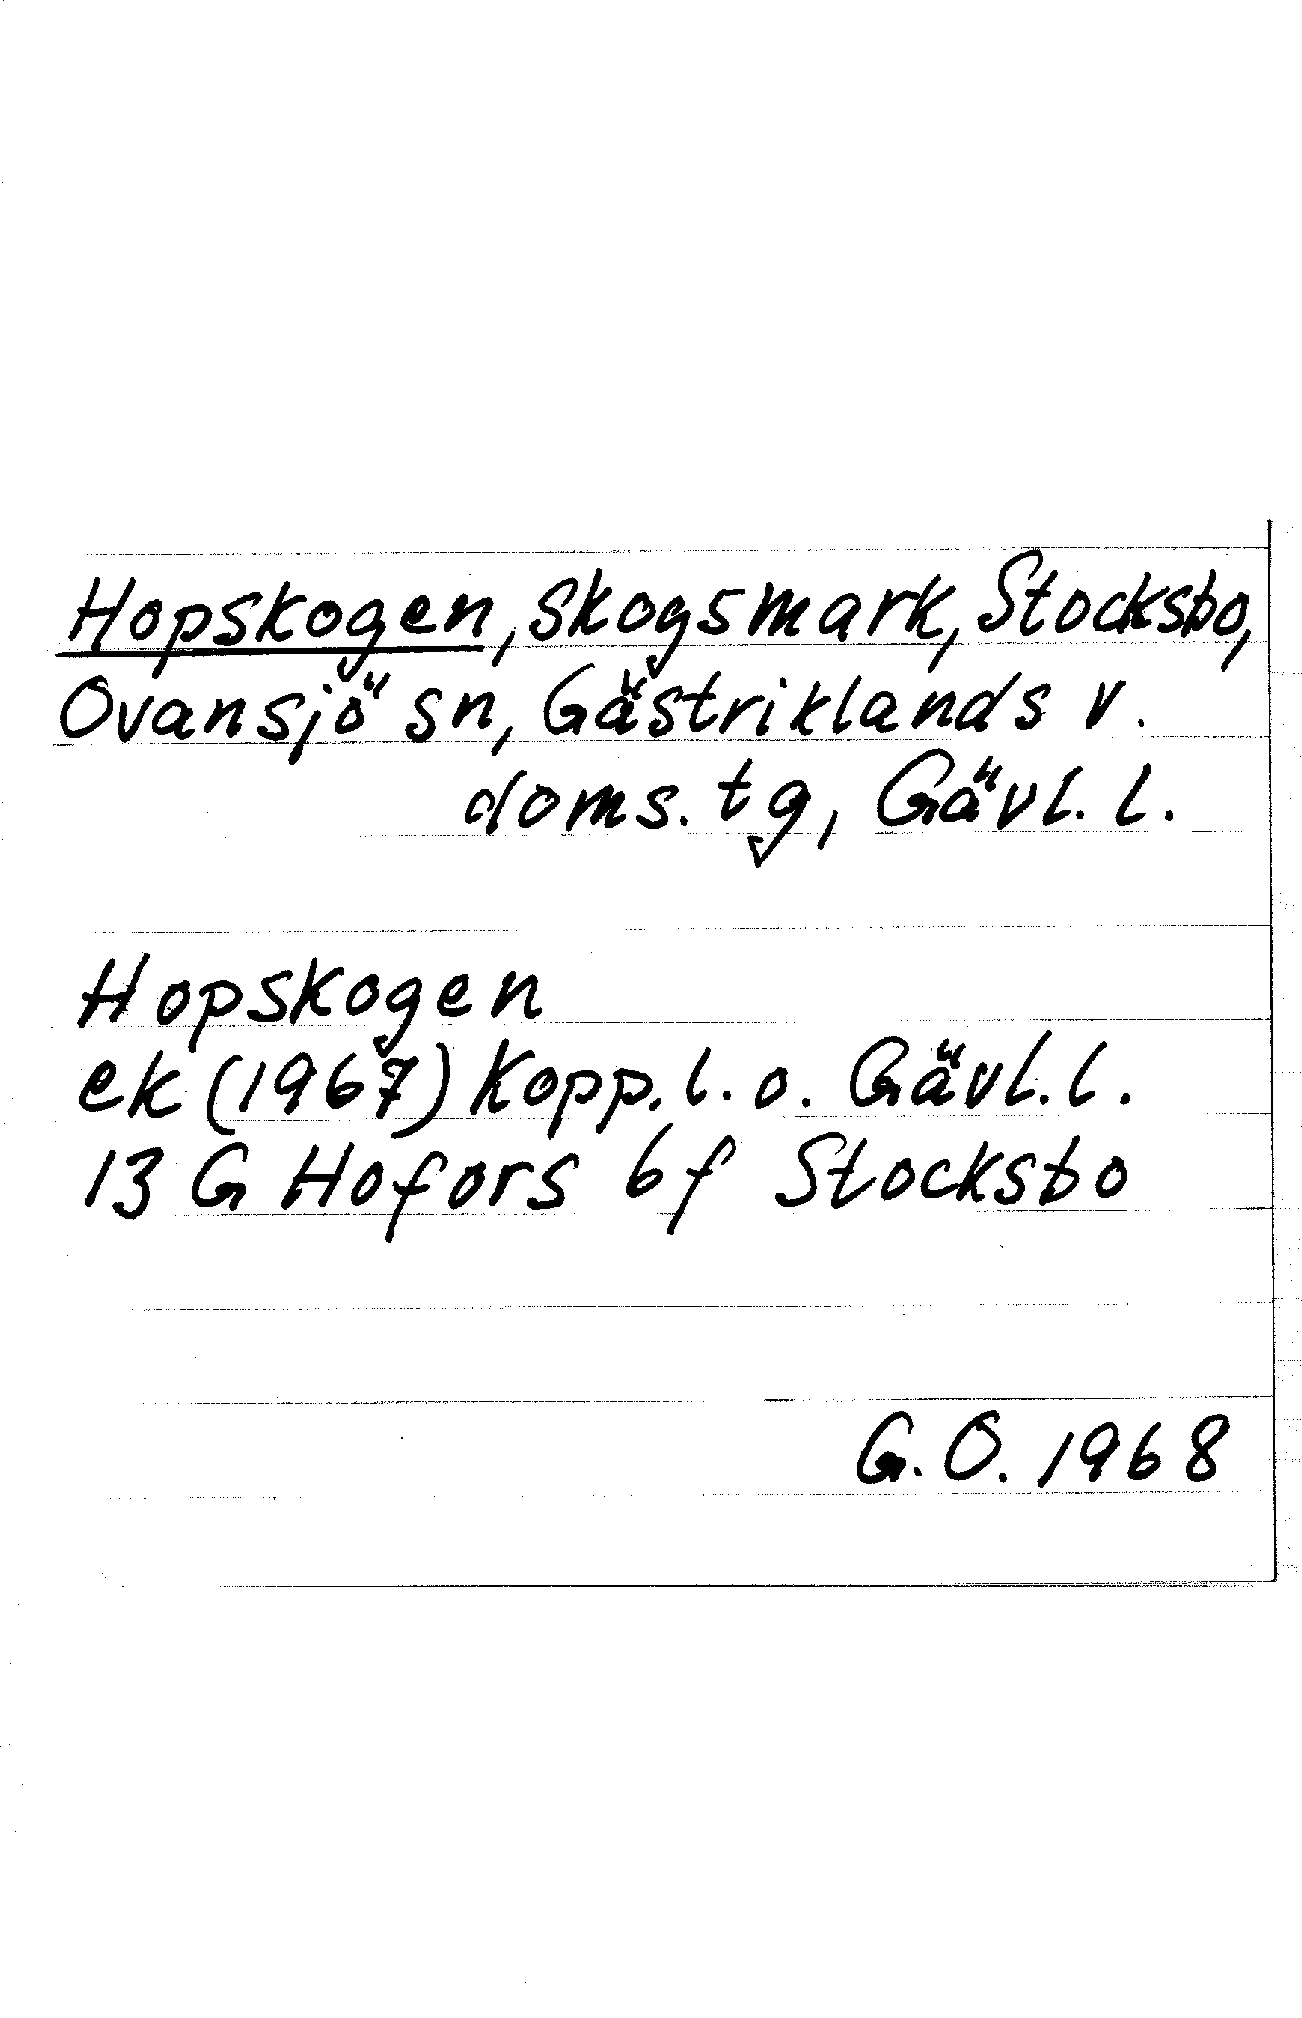 Hopskogen, skogsmark, Stocksbo,
Ovansjö sn, Gästriklands v.
doms. tg, Gävl. l.
Hopskogen
ek (1967) Kopp. l. o. Gävl. l.
13 G Hofors 6f Stocksbo
G. O. 1968